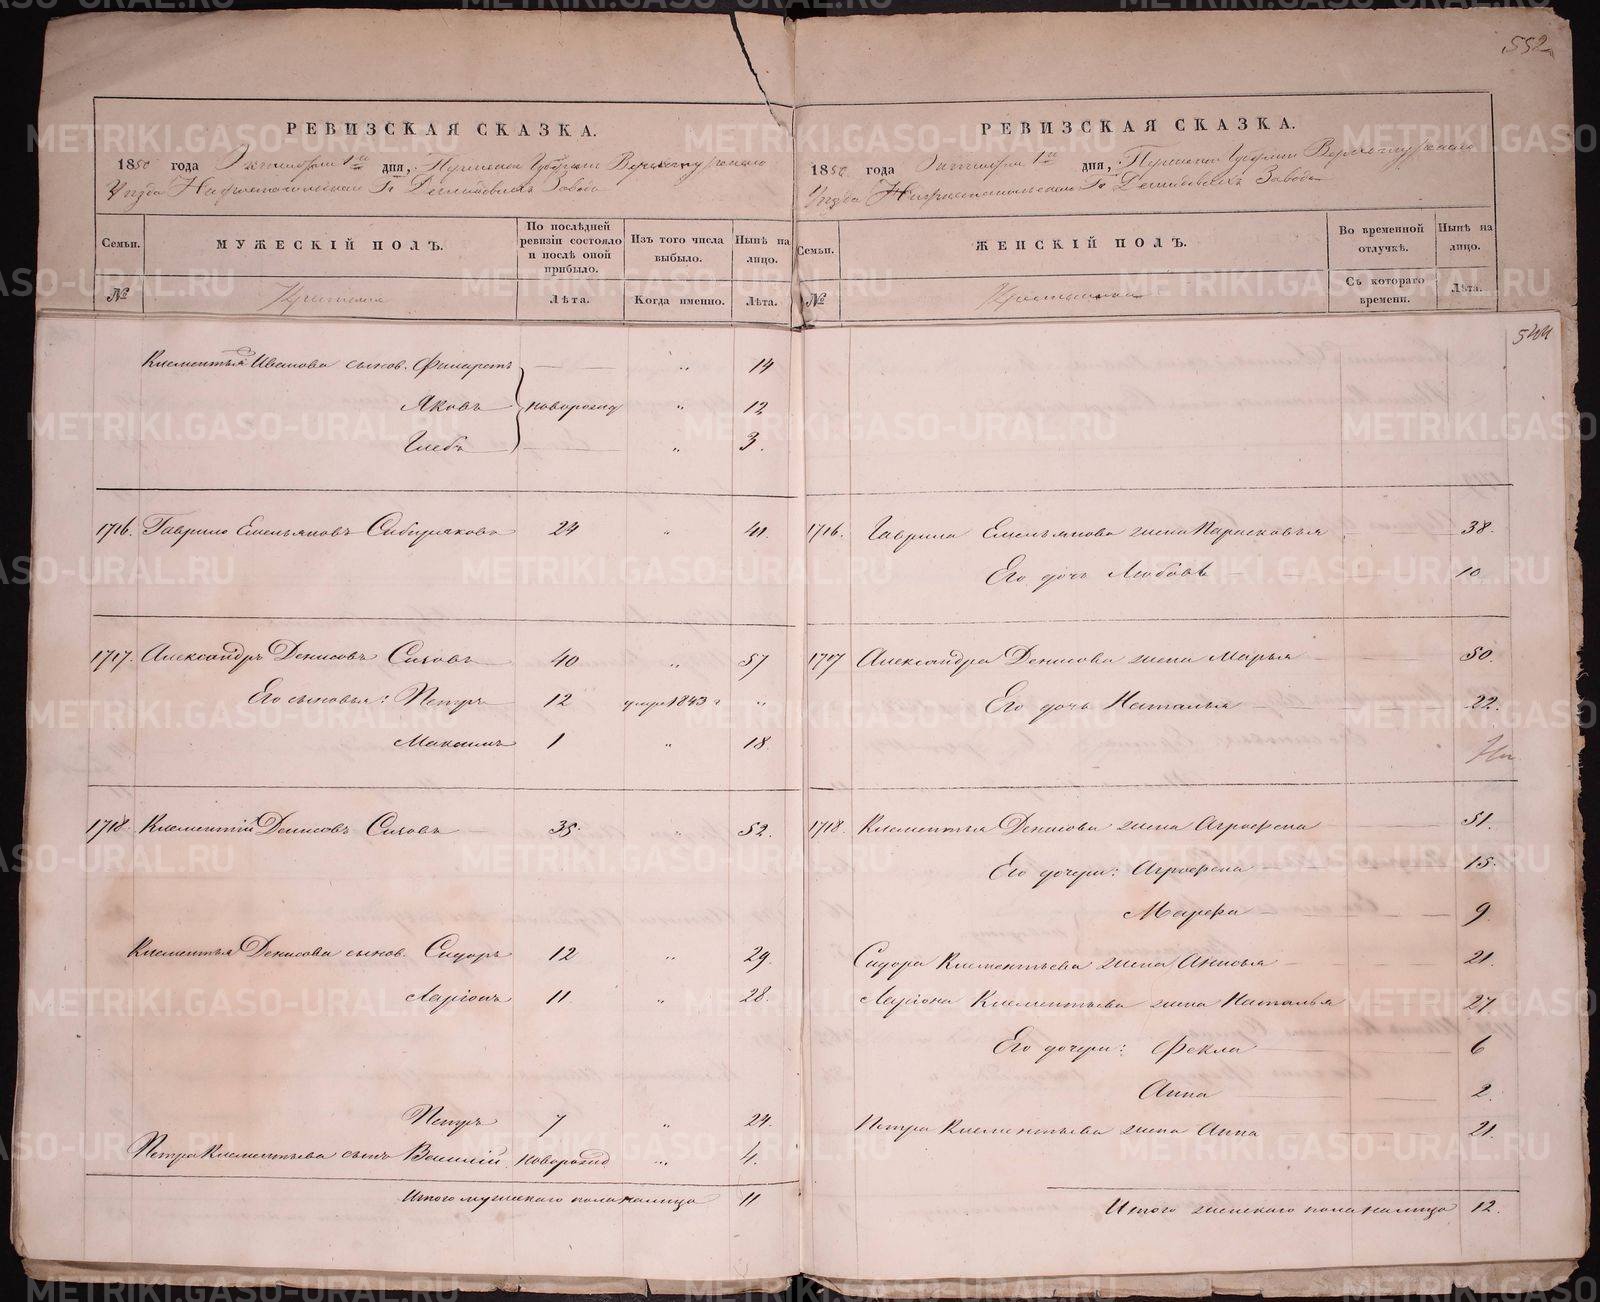 552
РЕВИЗСКАЯ СКАЗКА.
1850 года Октября 1го дня, Пермской Губернии Верхотурскаго
Уезда Нижнетагильскаго Гг. Демидовыхъ Завода
Семьи. МУЖЕСКІЙ ПОЛЪ. По послѣдней ревизіи состояло и послѣ оной прибыло. Изъ того числа выбыло. Нынѣ на лицо.
№ Крестьяне Лѣта. Когда именно. Лѣта.
Клементья Иванова сынов. Филаретъ — „ 14
Яковъ новорожд „ 12
Глебъ — „ 3.
1716. Гаврило Емельяновъ Сибиряковъ 24 „ 41.
1717. Александръ Денисовъ Сизовъ 40 „ 57
Его сыновья: Петръ 12 умеръ 1843 г „
Максимъ 1 „ 18.
1718. Клементій Денисовъ Сизовъ 35. „ 52.
Клементья Денисова сынов. Сидоръ 12 „ 29.
Ларіонъ 11 „ 28.
Петръ 7 „ 24.
Петра Клементьева сынъ Василій новорожд „ 4.
Итого мужескаго пола налицо 11
РЕВИЗСКАЯ СКАЗКА.
1850 года Октября 1го дня, Пермской Губерніи Верхотурскаго
Уезда Нижнетагильскаго Гг. Демидовыхъ Завода
Семьи. ЖЕНСКІЙ ПОЛЪ. Во временной отлучкѣ. Нынѣ на лицо.
№ Крестьянки Съ котораго времени. Лѣта.
544
1716. Гаврила Емельянова жена Парасковья 38.
Его дочь Любовь 10
1717 Александра Денисова жена Марья 50.
Его дочь Наталья 22.
1718. Клементья Денисова жена Аграфена 51.
Его дочери: Аграфена 15.
Марфа 9
Сидора Клементьева жена Анисья 21.
Ларіона Клементьева жена Наталья 27.
Его дочери: Фекла 6
Анна 2.
Петра Клементьева жена Анна 21.
Итого женскаго пола налицо 12.
METRIKI.GASO-URAL.RU